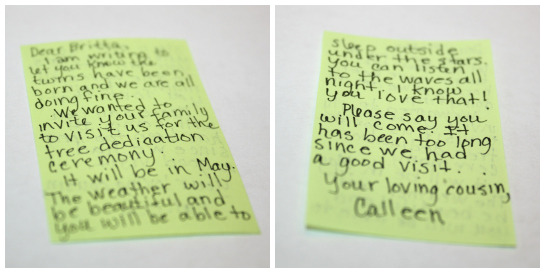 Dear Britta,
I am writing to
let you know the
twins have been
born and we are all
doing fine.
We wanted to
invite your family
to visit us for the
tree dedication
ceremony.
It will be in May.
The weather will
be beautiful and
you will be able to
sleep outside
under the stars.
You can listen
to the waves all
night. I know
you love that!
Please say you
will come. It
has been too long
since we had
a good visit.
Your loving cousin,
Calleen